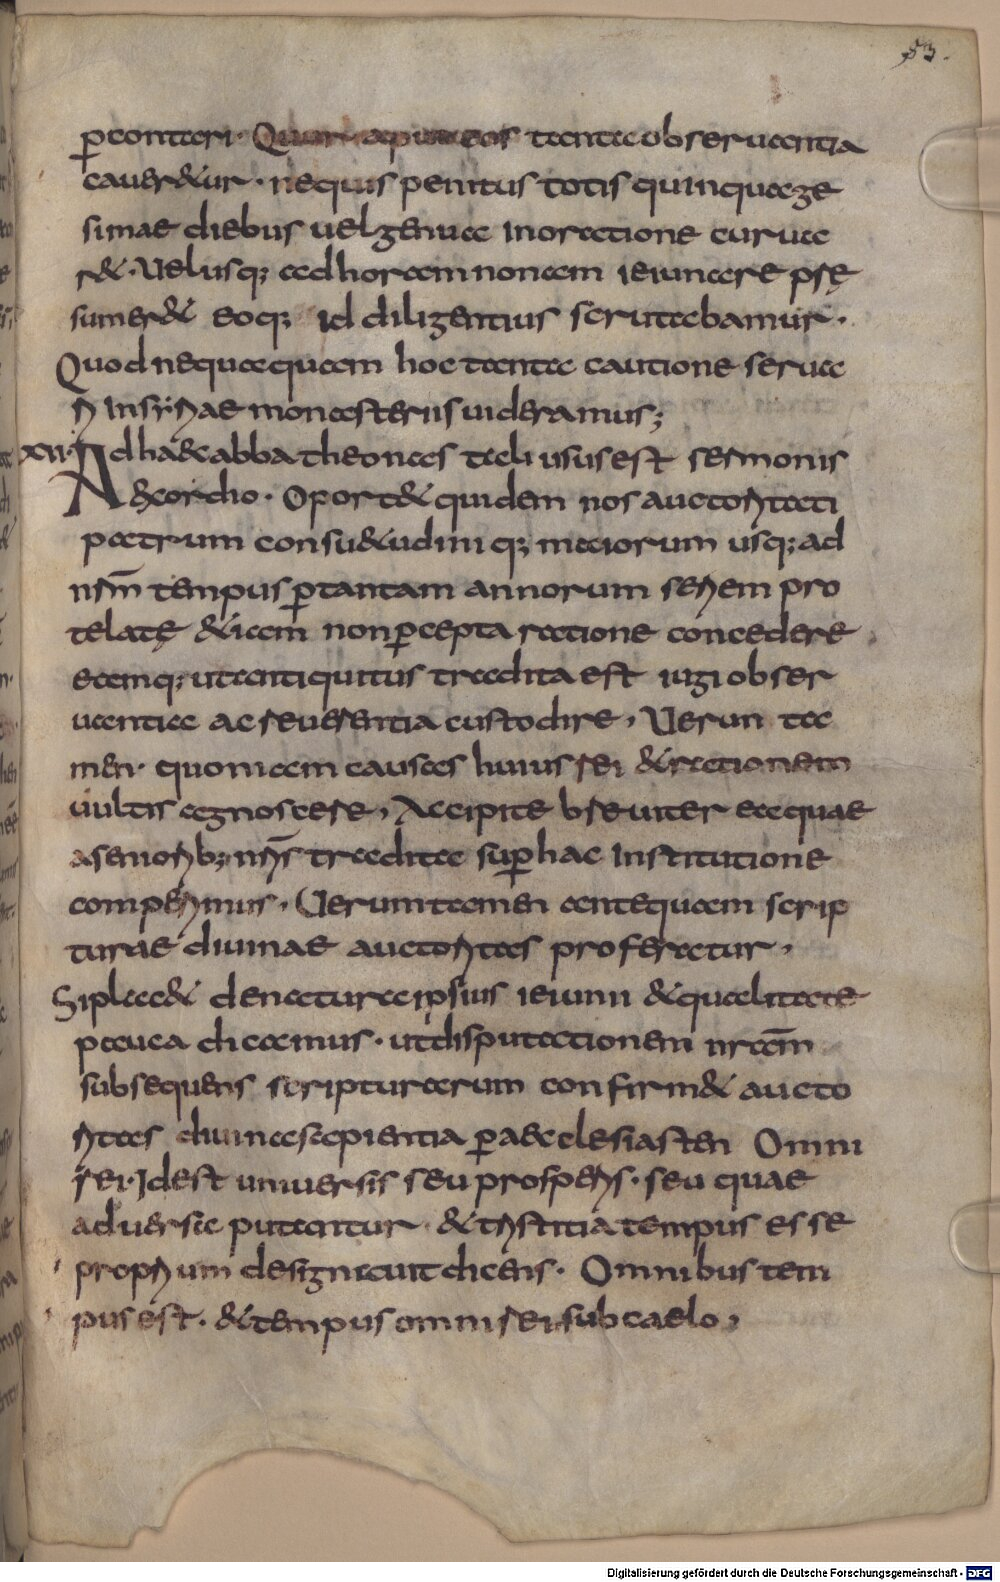 53.
p̱contari. Quur apud eos tanta obseruantia
caueretur. nequis penitus totis quinquage
simae diebus uel genua inoratione curua
ret. Uel usq; ad horam nonam ieiunare pręsę
sumeret eoq; id diligentius scrutabamur.
Quod nequaquam hoc tanta cautione serua
ri insyriae monasteriis uideramus;
XII. Ad haec abba theonas tali usus est sermonis
exordio. Oportet quidem nos auctoritati
patrum consuetudiniq; maiorum usq; ad
nr̄m tempus p̱ tantam annorum seriem pro
telatę etiam non p̱cepta ratione concedere
eamq; ut antiquitus tradita est iugi obser
uantia ac reuerentia custodire, Uerun ta
men. quoniam causas huius rei et rationem
uultis cognoscere, Accipite breuiter ea quae
a seniorib; nr̄is tradita sup̱ hac institutione
comperimus, Uerumtamen antequam scrip
turae diuinae auctoritas proferatur,
Si placet de natura ipsius ieiunii et qualitate
pauca dicamus. ut disputationem nr̄am
subsequens scripturarum confirmet aucto
ritas diuina sapientia p̱ aecclesiasten Omni
rei. Idest uniuersis seu prosperis. seu quae
aduersa putantur et tristitia tempus esse
proprium designauit dicens. Omnibus tem
pus est. et tempus omni rei sub caelo,
Digitalisierung gefördert durch die Deutsche Forschungsgemeinschaft - DFG